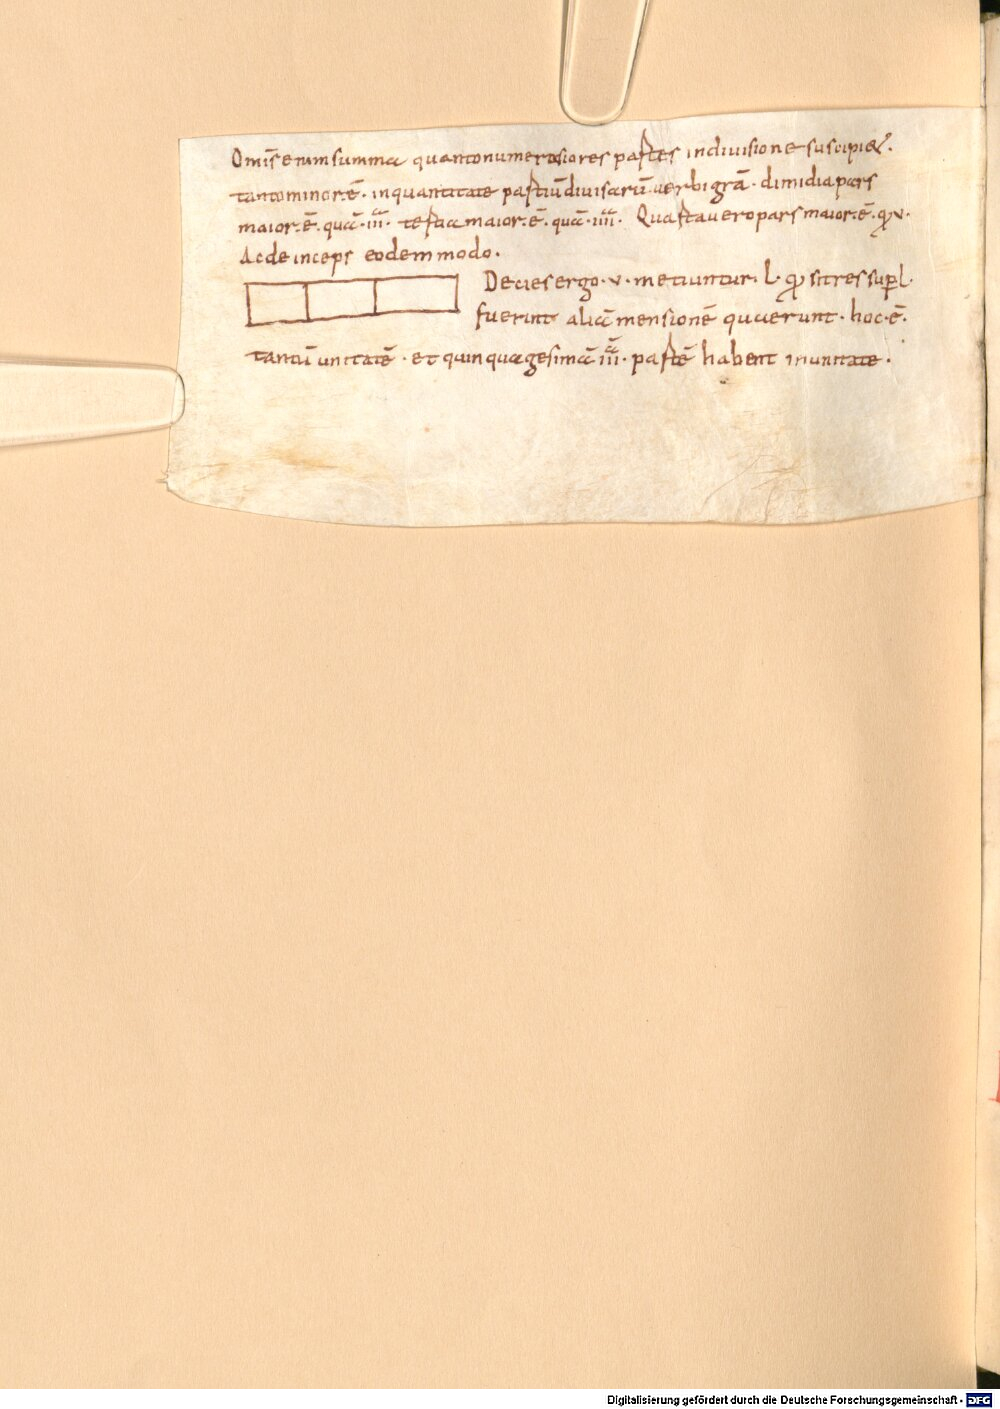 Omīs enim summa quanto numerosiores partes in diuisione suscipiet.
tanto minor .ē. in quantitate partiū diuisarū uerbi grā. dimidia pars
maior .ē. quā .iii. tertia maior .ē. quā .iiii. Quarta uero pars maior .ē. qֿ .v.
Ac deinceps eodem modo.
Decies ergo .v. metiuntur .l. si tres sup̄ .l.
fuerint aliā mensionē quaerunt. hoc .ē.
tantū unitatē. et quinquagesimā iii. partē habent in unitate.
Digitalisierung gefördert durch die Deutsche Forschungsgemeinschaft - DFG